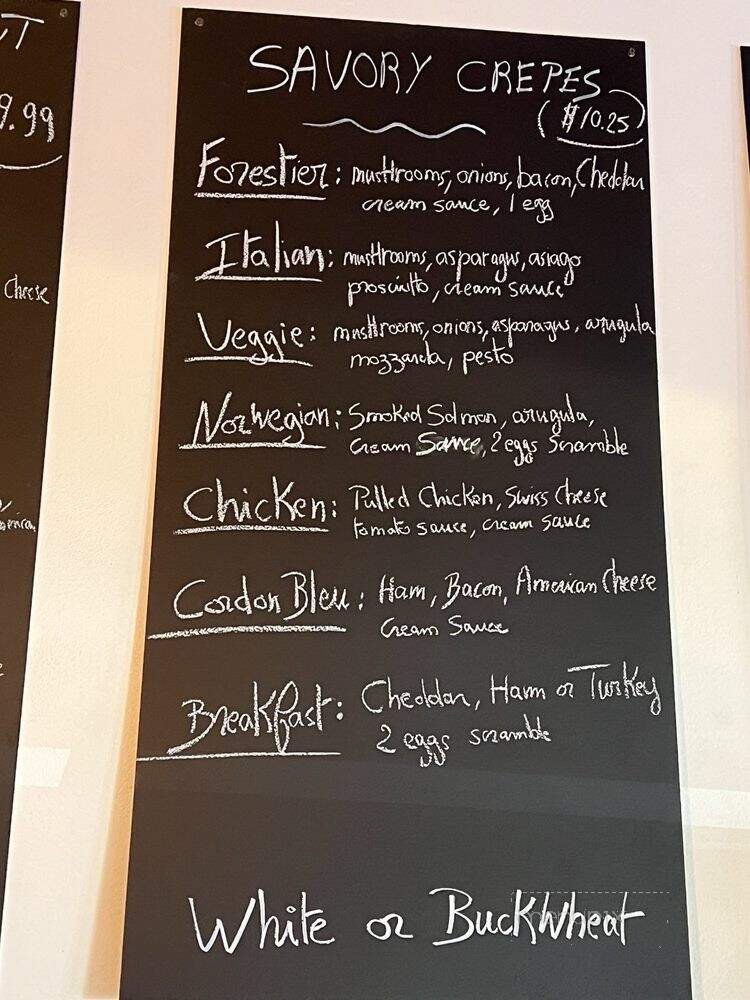 SAVORY CREPES
($10.25)
Forestier: mushrooms, onions, bacon, Cheddar
cream sauce, 1 egg
Italian: mushrooms, asparagus, asiago
prosciutto, cream sauce
Veggie: mushrooms, onions, asparagus, arugula
mozzarela, pesto
Norwegian: Smoked Salmon, arugula,
Cream Sauce, 2 eggs Scramble
Chicken: Pulled Chicken, Swiss Cheese
tomato sauce, cream sauce
Cordon Bleu: Ham, Bacon, American Cheese
Cream Sauce
Breakfast: Cheddar, Ham or Turkey
2 eggs scramble
White or BuckWheat
9.99
Cheese